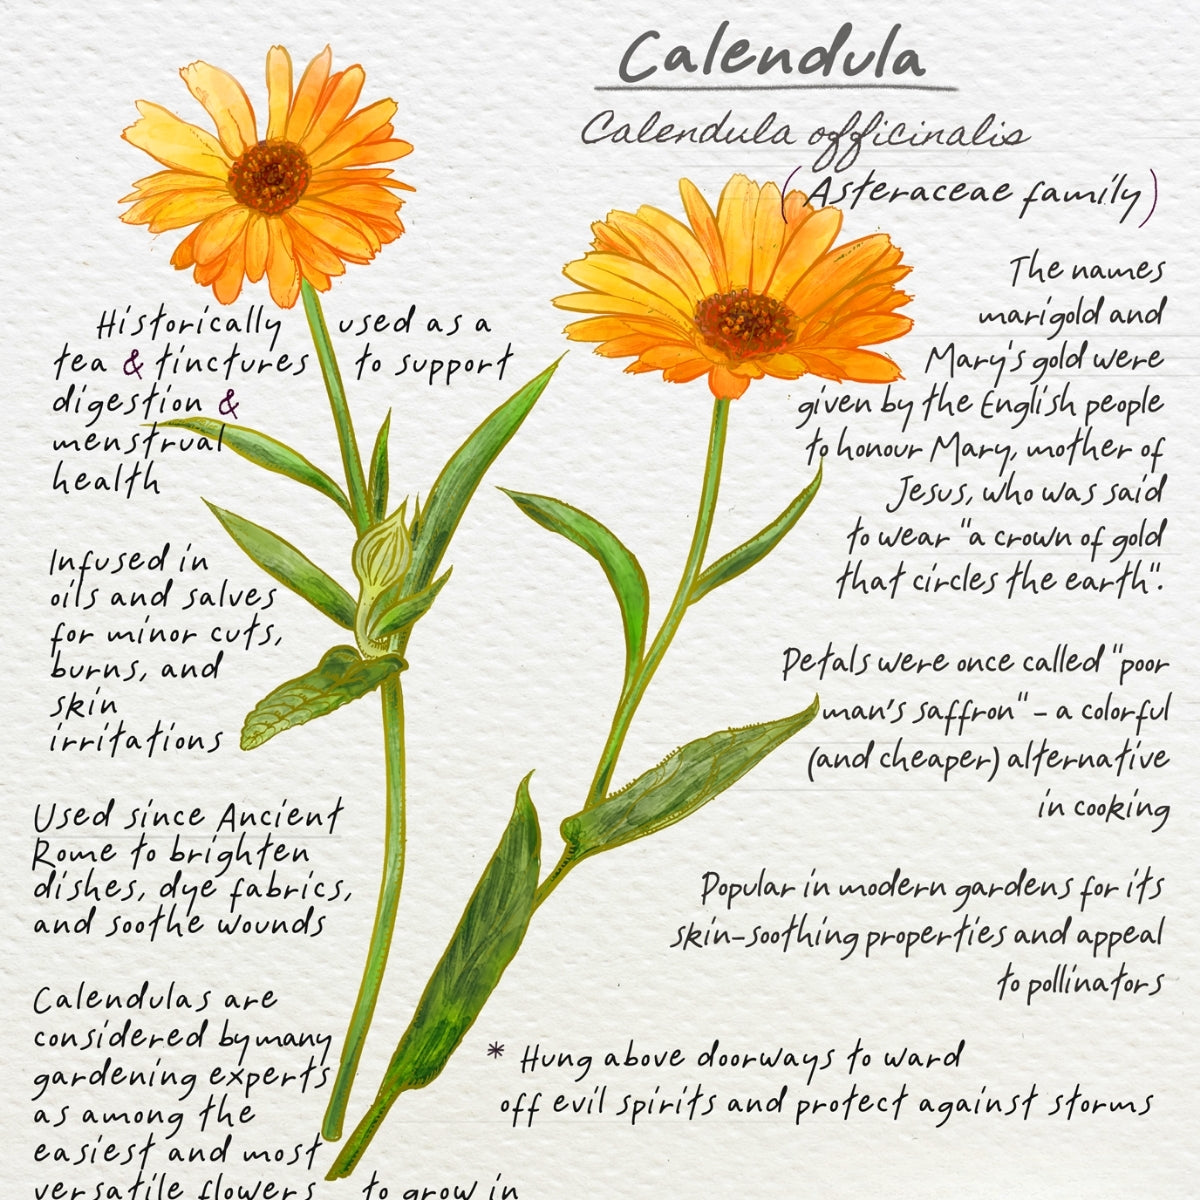 Calendula
Calendula officinalis
(Asteraceae family)
Historically used as a
tea & tinctures to support
digestion &
menstrual
health
Infused in
oils and salves
for minor cuts,
burns, and
skin
irritations
Used since Ancient
Rome to brighten
dishes, dye fabrics,
and soothe wounds
Calendulas are
considered by many
gardening experts
as among the
easiest and most
versatile flowers to grow in
The names
marigold and
Mary's gold were
given by the English people
to honour Mary, mother of
Jesus, who was said
to wear "a crown of gold
that circles the earth".
Petals were once called "poor
man's saffron" - a colorful
(and cheaper) alternative
in cooking
Popular in modern gardens for its
skin-soothing properties and appeal
to pollinators
* Hung above doorways to ward
off evil spirits and protect against storms